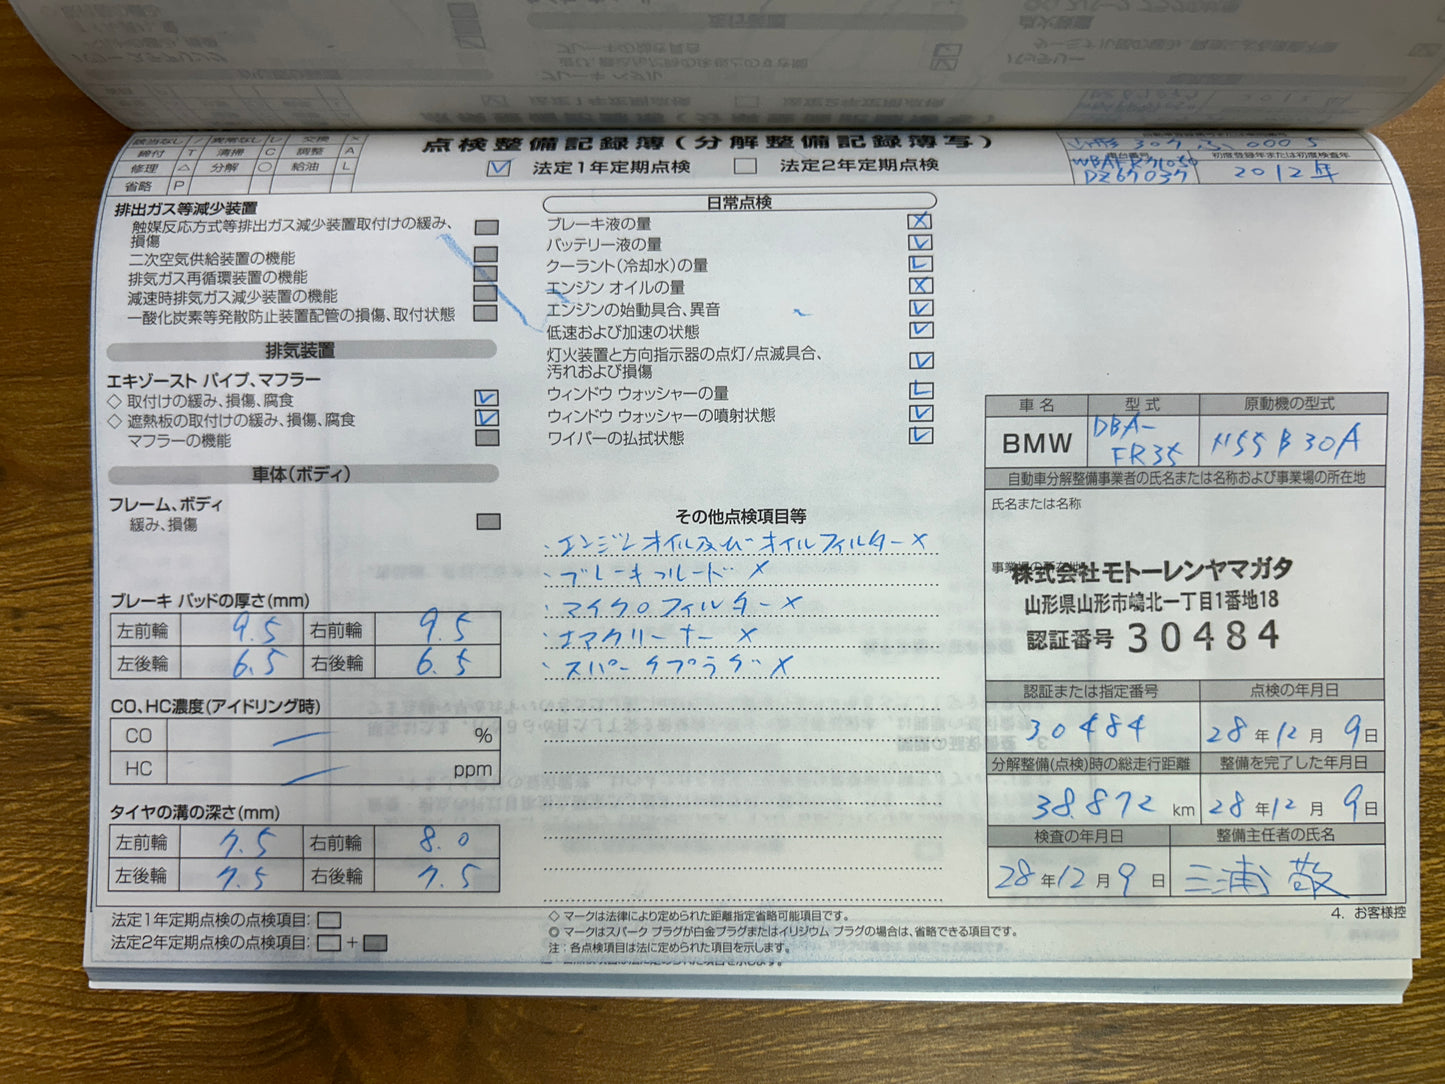 点検整備記録簿(分解整備記録簿写)
該当なし / 異常なし レ 交換 ×
締付 T 清掃 C 調整 A
修理 △ 分解 ○ 給油 L
省略 P
☑ 法定1年定期点検 □ 法定2年定期点検
自動車登録番号または車両番号
山形 307 ふ 0005
車台番号
WBAFR71050
DZ67037
初度登録年または初度検査年
2012年
排出ガス等減少装置
触媒反応方式等排出ガス減少装置取付けの緩み、
損傷
二次空気供給装置の機能
排気ガス再循環装置の機能
減速時排気ガス減少装置の機能
一酸化炭素等発散防止装置配管の損傷、取付状態
排気装置
エキゾースト パイプ、マフラー
◇ 取付けの緩み、損傷、腐食 レ
◇ 遮熱板の取付けの緩み、損傷、腐食 レ
マフラーの機能
車体(ボディ)
フレーム、ボディ
緩み、損傷
ブレーキ パッドの厚さ(mm)
左前輪 9.5 右前輪 9.5
左後輪 6.5 右後輪 6.5
CO、HC濃度(アイドリング時)
CO — %
HC — ppm
タイヤの溝の深さ(mm)
左前輪 7.5 右前輪 8.0
左後輪 7.5 右後輪 7.5
法定1年定期点検の点検項目: □
法定2年定期点検の点検項目: □ + ■
日常点検
ブレーキ液の量 ×
バッテリー液の量 レ
クーラント(冷却水)の量 L
エンジン オイルの量 ×
エンジンの始動具合、異音 レ
低速および加速の状態 レ
灯火装置と方向指示器の点灯/点滅具合、
汚れおよび損傷 レ
ウィンドウ ウォッシャーの量 L
ウィンドウ ウォッシャーの噴射状態 レ
ワイパーの払拭状態 レ
その他点検項目等
・エンジンオイル及び オイルフィルター ×
・ブレーキフルード ×
・マイクロフィルター ×
・エアクリーナー ×
・スパークプラグ ×
◇ マークは法律により定められた距離指定省略可能項目です。
◎ マークはスパーク プラグが白金プラグまたはイリジウム プラグの場合は、省略できる項目です。
注：各点検項目は法に定められた項目を示します。
車名 型式 原動機の型式
BMW DBA-FR35 N55B30A
自動車分解整備事業者の氏名または名称および事業場の所在地
氏名または名称
事業場の所在地
株式会社モトーレンヤマガタ
山形県山形市嶋北一丁目1番地18
認証番号 30484
認証または指定番号 点検の年月日
30484 28年12月9日
分解整備(点検)時の総走行距離 整備を完了した年月日
38.872 km 28年12月9日
検査の年月日 整備主任者の氏名
28年12月9日 三浦 敬
4. お客様控